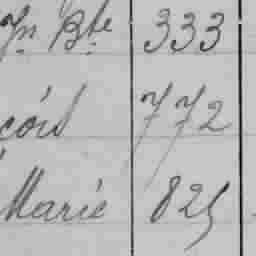 Jn Bte 333
çois 772
Marie 825